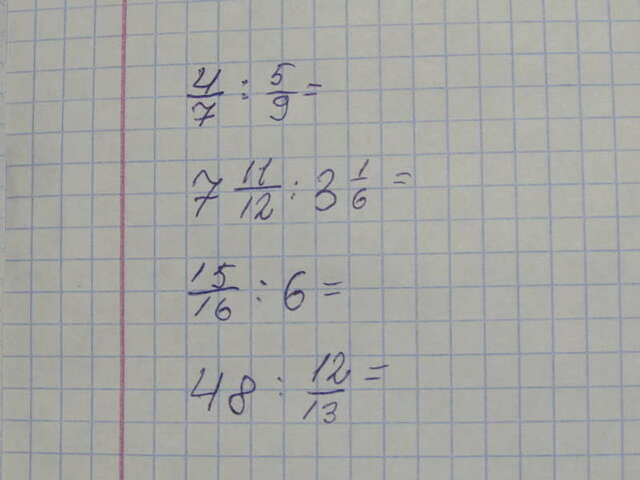 4/7 : 5/9 =
7 11/12 : 3 1/6 =
15/16 : 6 =
48 : 12/13 =